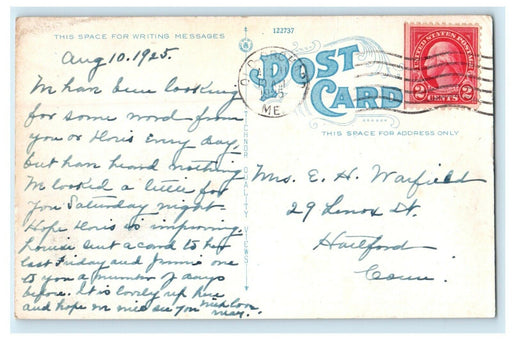 THIS SPACE FOR WRITING MESSAGES
Aug 10. 1925.
We have been looking
for some word from
you or Doris every day,
but have heard nothing
We looked a little for
you Saturday night
Hope Doris is improving.
Louise sent a card to
last Friday and Jennie one
to you a number of days
before. It is lovely up here
and hope we will see you
near.
122737
POST
CARD
THIS SPACE FOR ADDRESS ONLY
TICHNOR QUALITY VIEWS
ME
UNITED STATES POSTAGE
2 CENTS 2
Mrs. E. H. Warfield
29 Lenox St.
Hartford
Conn.